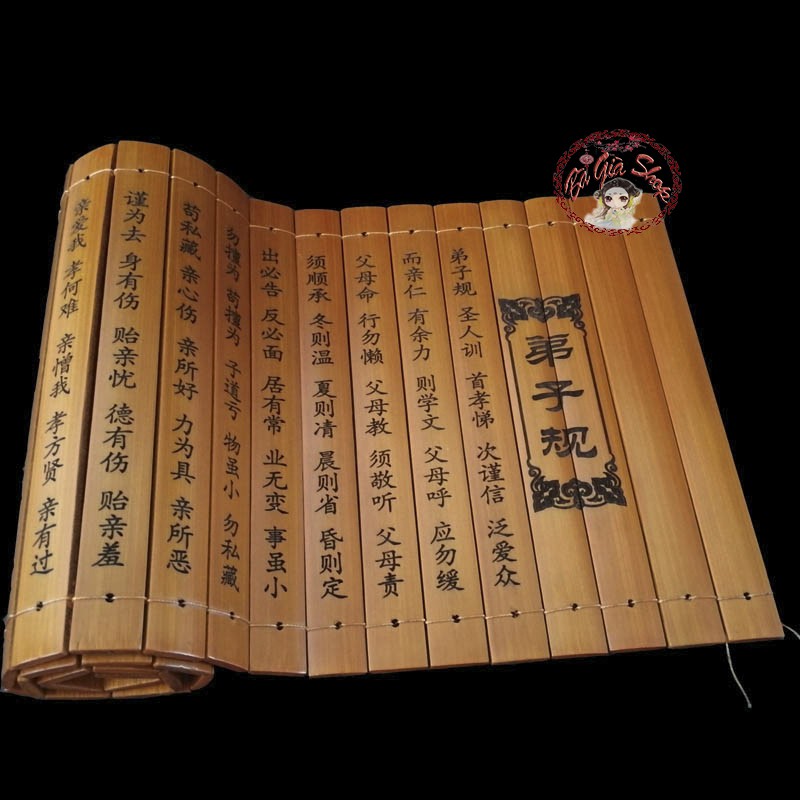 Bà Già Shop
弟子规
弟子规 圣人训 首孝悌 次谨信 泛爱众
而亲仁 有余力 则学文 父母呼 应勿缓
父母命 行勿懒 父母教 须敬听 父母责
须顺承 冬则温 夏则凊 晨则省 昏则定
出必告 反必面 居有常 业无变 事虽小
勿擅为 苟擅为 子道亏 物虽小 勿私藏
苟私藏 亲心伤 亲所好 力为具 亲所恶
谨为去 身有伤 贻亲忧 德有伤 贻亲羞
亲爱我 孝何难 亲憎我 孝方贤 亲有过